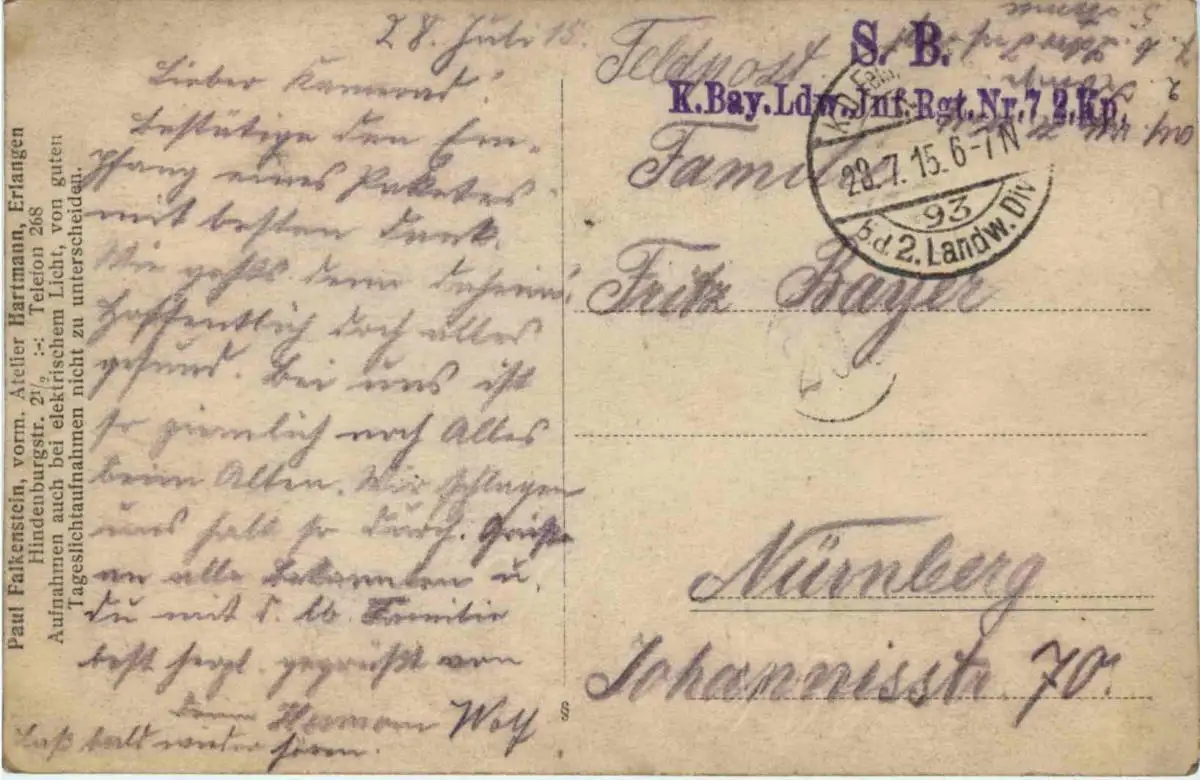 28. Juli 15.
Lieber Kamerad!
Bestätige den Em-
pfang eines Paketes
mit besten Dank.
Wie gehts denn daheim?
Hoffentlich doch alles
gesund. Bei uns ist
so ziemlich noch Alles
beim Alten. Wir schlagen
uns halt so durch. Grüße
an alle Bekannten u.
Du mit d. lb. Familie
best herzl. gegrüßt von
Hermann Wolf
Laß bald wieder hören.
Paul Falkenstein, vorm. Atelier Hartmann, Erlangen
Hindenburgstr. 2 1/2 :-: Telefon 268
Aufnahmen auch bei elektrischem Licht, von guten
Tageslichtaufnahmen nicht zu unterscheiden.
§
Feldpost
S. B.
K.Bay.Ldw.Inf.Rgt.Nr.7 2.Kp.
28.7.15.6-7N
93
b.d. 2. Landw. Div
Familie
Fritz Bayer
Nürnberg
Johannisstr 70.